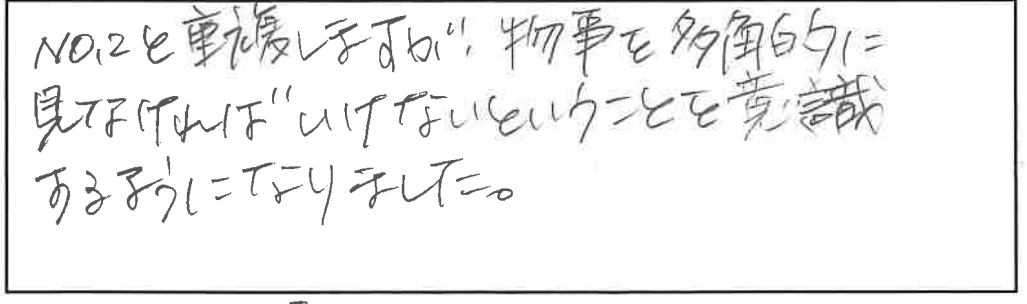 NO.2と重複しますが、物事を多角的に
見なければいけないということを意識
するようになりました。